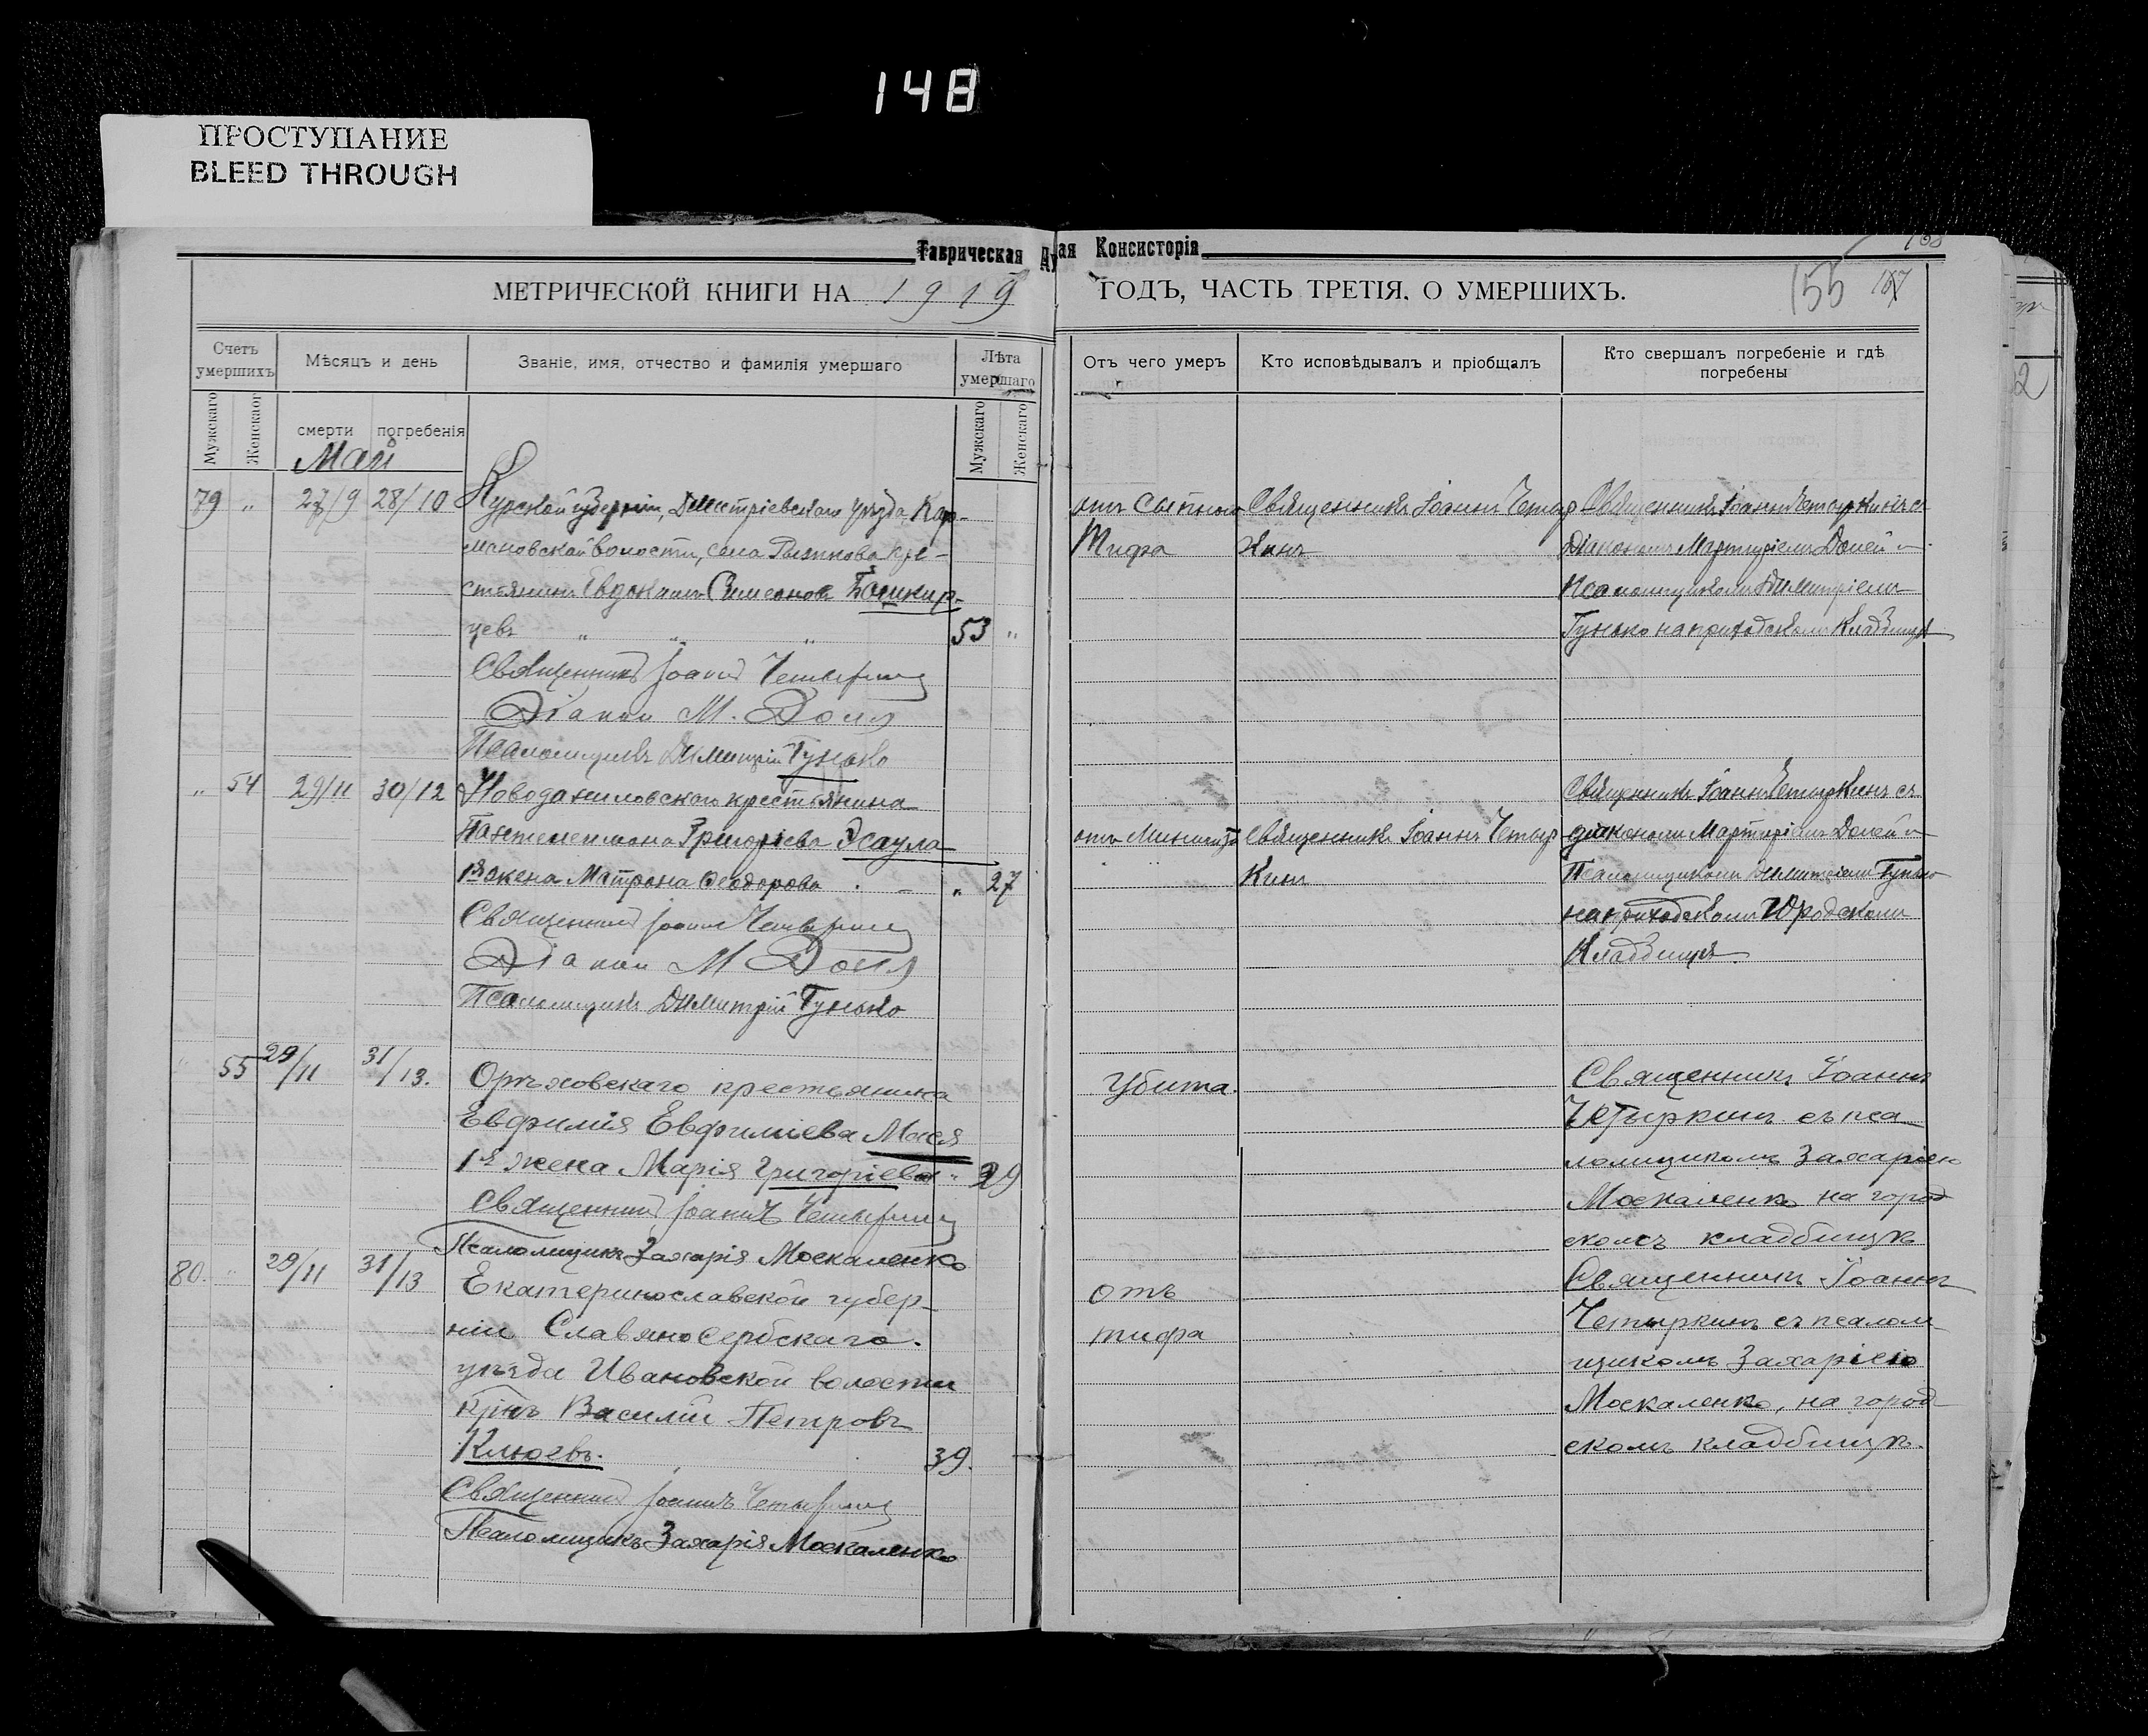 148
ПРОСТУПАНИЕ
BLEED THROUGH
Таврическая Ду ая Консисторія
МЕТРИЧЕСКОЙ КНИГИ НА 1919
ГОДЪ, ЧАСТЬ ТРЕТІЯ, О УМЕРШИХЪ.
155
Счетъ умершихъ
Мѣсяцъ и день
Званіе, имя, отчество и фамилія умершаго
Лѣта умершаго
Отъ чего умеръ
Кто исповѣдывалъ и пріобщалъ
Кто свершалъ погребеніе и гдѣ погребены
Мужскаго
Женскаог
смерти
погребенія
Мужскаго
Женскаго
Май
79 " 27/9 28/10
Курской губерніи, Дмитріевскаго уѣзда, Кар-
мановской волости, села кре-
стьянинъ Евдокимъ Симеоновъ Башкир-
цевъ " " " 53 "
Священникъ Іоаннъ Четыркинъ
Діакон М. Доля
Псаломщикъ Димитрій Гунько
отъ сыпного
Тифа
Священникъ Іоаннъ Четыр
кинъ
Священникъ Іоаннъ Четыркинъ съ
діакономъ Мартиріемъ Долей и
Псаломщикомъ Димитріемъ
Гунько на приходскомъ кладбищѣ
" 54 29/11 30/12
Новоданиловскаго крестьянина
Пантелеимона Григорьева Эсаула
1я жена Матрона Ѳеодорова " 27
Священникъ Іоаннъ Четыркинъ
Діакон М Доля
Псаломщикъ Димитрій Гунько
отъ
Священникъ Іоаннъ Четыр
кинъ
Священникъ Іоаннъ Четыркинъ съ
діакономъ Мартиріемъ Долей и
Псаломщикомъ Димитріемъ Гунько
на приходскомъ Городскомъ
Кладбищѣ.
" 55 29/11 31/13.
Орѣховскаго крестьянина
Евфимія Евфиміева
1я жена Марія Григоріева " 29
Священникъ Іоаннъ Четыркинъ
Псаломщикъ Захарія Москаленко
Убита.
Священникъ Іоаннъ
Четыркинъ съ пса
ломщикомъ Захаріею
Москаленко на город
скомъ кладбищѣ
80. " 29/11 31/13
Екатеринославской губер-
ніи Славяносербскаго
уѣзда Ивановской волости
кр-нъ Василій Петровъ
Клюевъ. 39.
Священникъ Іоаннъ Четыркинъ
Псаломщикъ Захарія Москаленко
отъ
тифа
Священникъ Іоаннъ
Четыркинъ съ псалом
щикомъ Захаріею
Москаленко, на город
скомъ кладбищѣ.